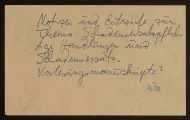 Notizen und Entwürfe zum
Thema: Schadensersatzpflicht
Handlungen und
Schadensersatz.
Vorlesungsmanuskripte?
Wa